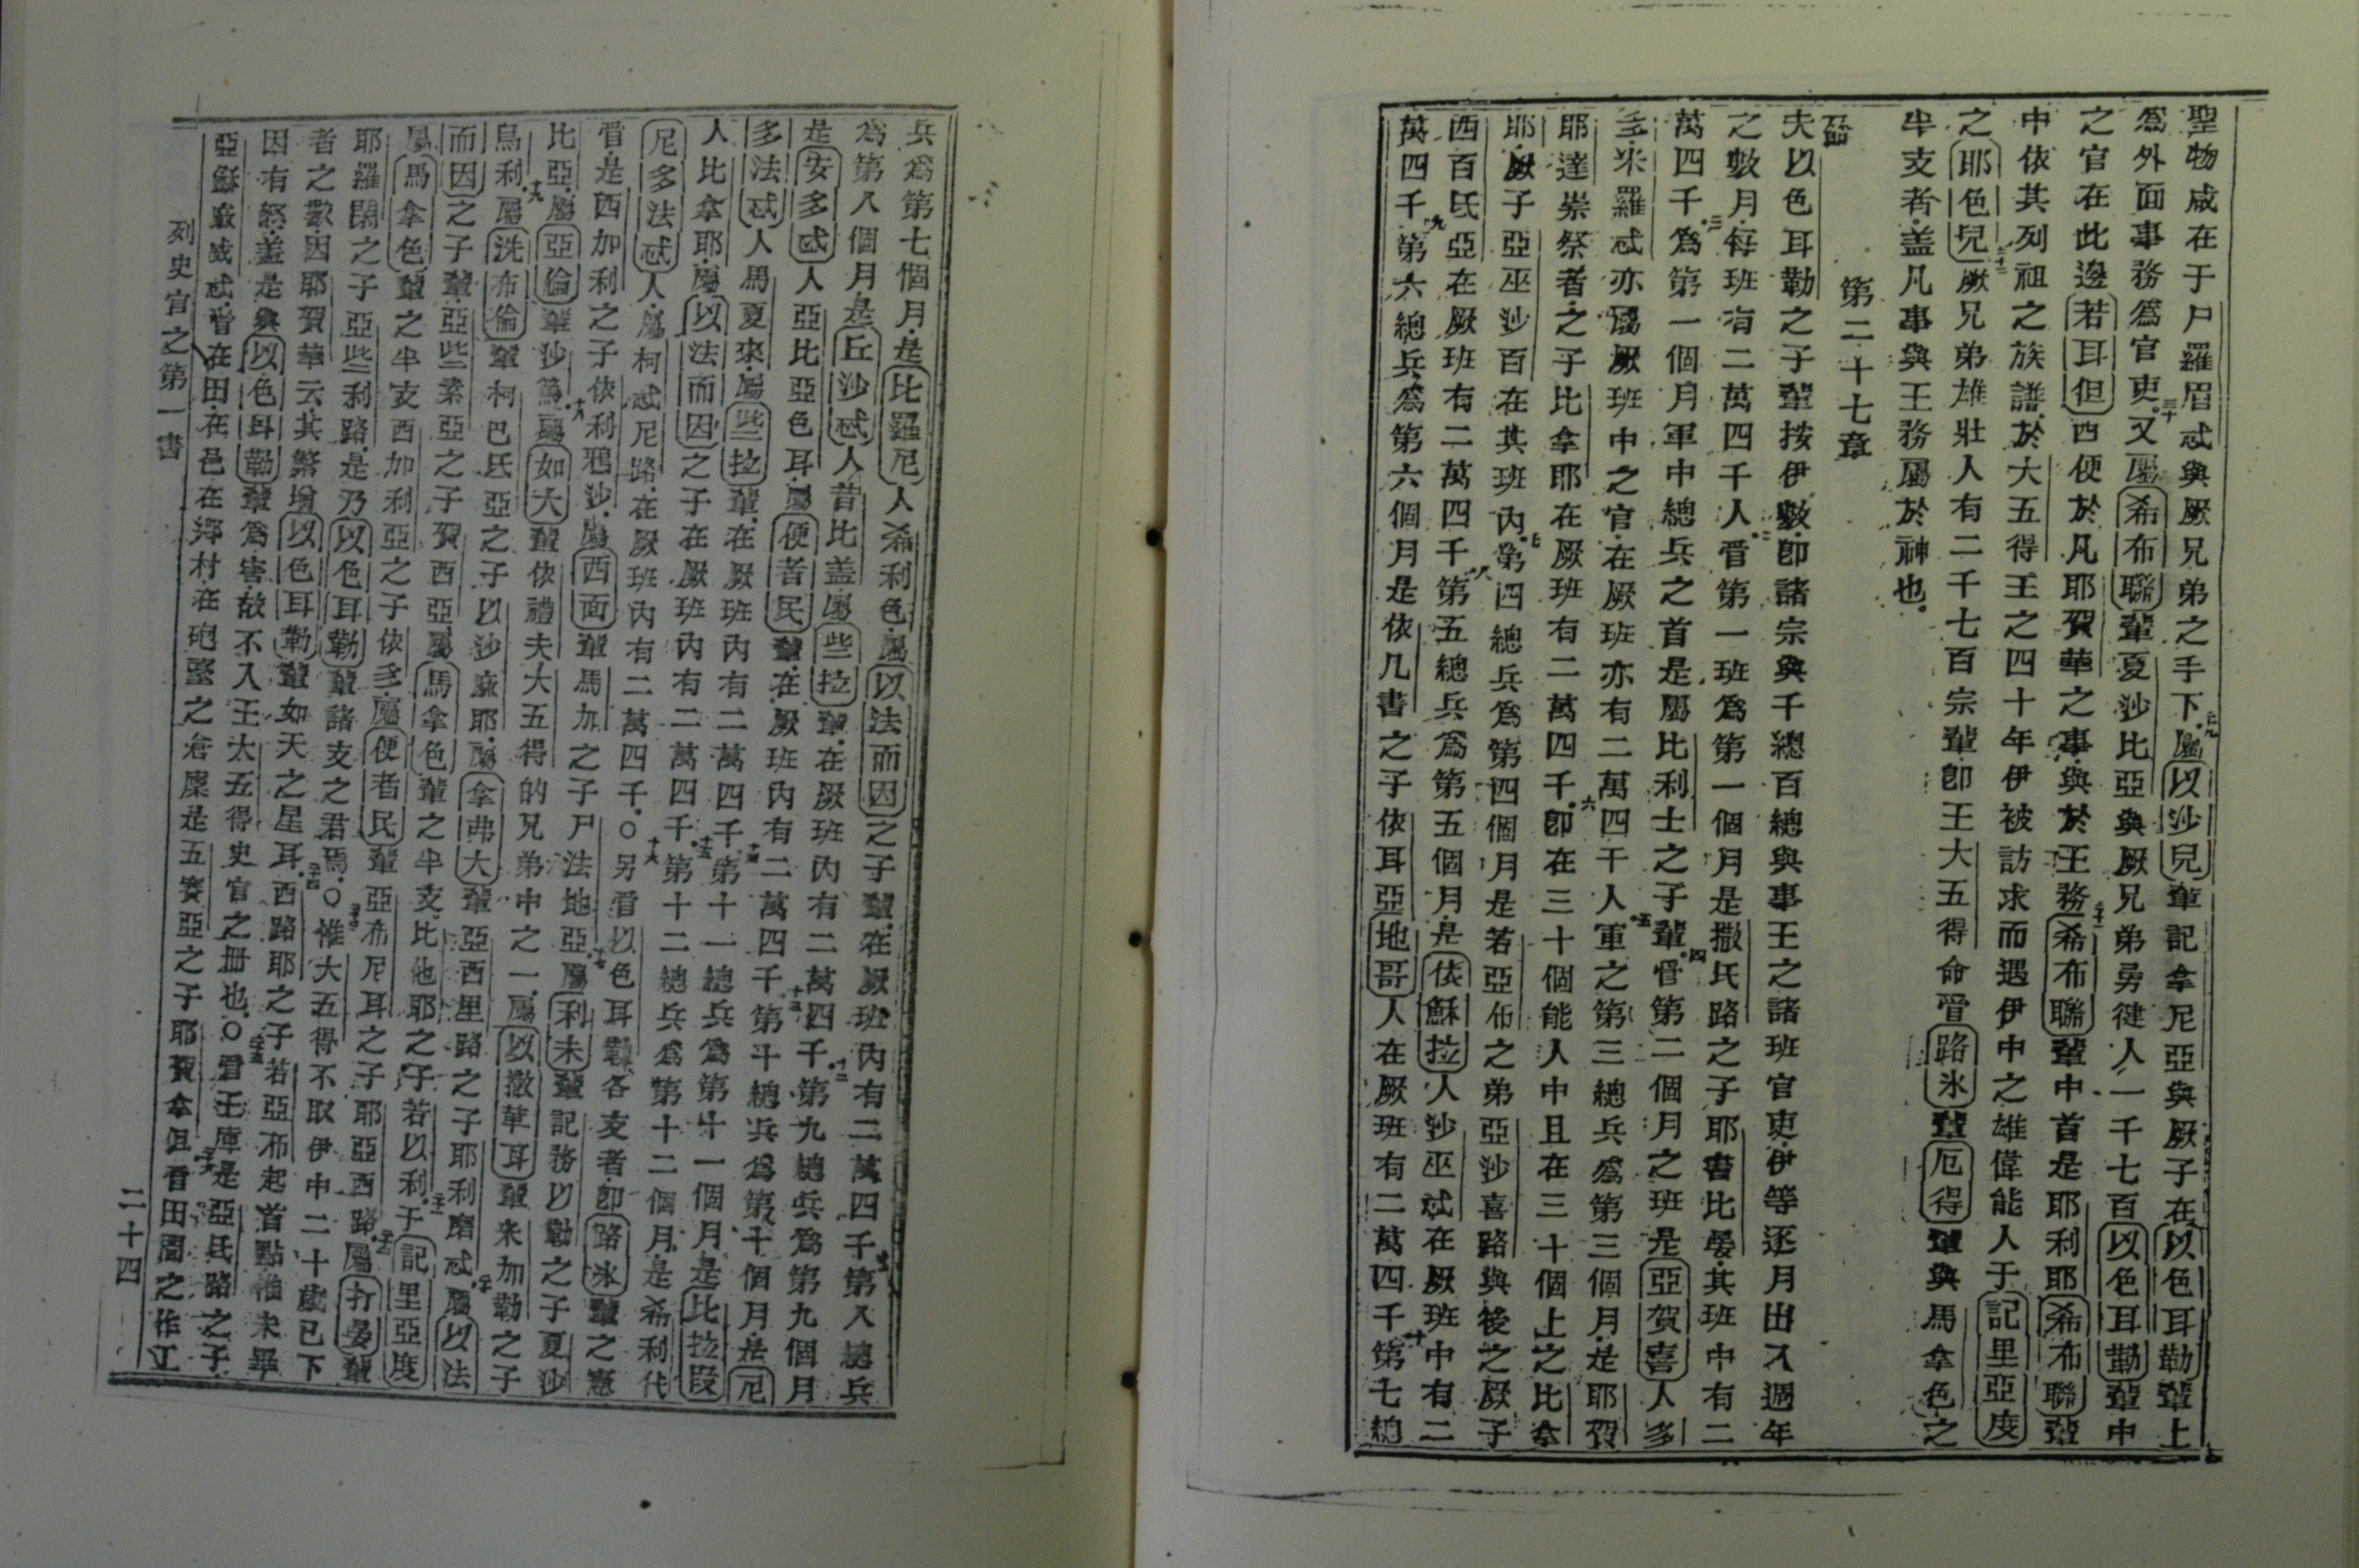 聖物咸在于尸羅眉忒與厥兄弟之手下屬以沙兒輩記拿尼亞與厥子在以色耳勒輩上
爲外面事務爲官吏三十又屬希布聯輩夏沙比亞與厥兄弟勇健人一千七百以色耳勒輩中
之官在此邊若耳但西便於凡耶賀華之事與於王務希布聯輩中首是耶利耶希布聯輩
中依其列祖之族譜於大五得王之四十年伊被訪求而遇伊中之雄偉能人于記里亞度
之耶色兒三十二厥兄弟雄壯人有二千七百宗輩卽王大五得命管路氷輩厄得輩與馬拿色之
半支者盖凡事與王務屬於神也
第二十七章
夫以色耳勒之子輩按伊數卽諸宗與千總百總與事王之諸班官吏伊等逐月出入週年
之數月每班有二萬四千人二管第一班爲第一個月是撒氐路之子耶書比晏其班中有二
萬四千三爲第一個月軍中總兵之首是屬比利士之子輩四管第二個月之班是亞賀喜人多
多米羅忒亦屬厥班中之官在厥班亦有二萬四千人五軍之第三總兵爲第三個月是耶賀
耶達崇祭者之子比拿耶在厥班有二萬四千六卽在三十個能人中且在三十個上之比拿
耶厥子亞巫沙百在其班內七第四總兵爲第四個月是若亞布之弟亞沙喜路與後之厥子
西百氐亞在厥班有二萬四千八第五總兵爲第五個月是依穌拉人沙巫忒在厥班中有二
萬四千九第六總兵爲第六個月是依几書之子依耳亞地哥人在厥班有二萬四千十第七總
兵爲第七個月是比羅尼人希利色屬以法而因之子輩在厥班內有二萬四千十一第八總兵
爲第八個月是丘沙忒人昔比盖屬些拉輩在厥班內有二萬四千十二第九總兵爲第九個月
是安多忒人亞比亞色耳屬便者民輩在厥班內有二萬四千十三第十總兵爲第十個月是尼
多法忒人馬夏來屬些拉輩在厥班內有二萬四千十四第十一總兵爲第十一個月是比拉段
人比拿耶屬以法而因之子在厥班內有二萬四千十五第十二總兵爲第十二個月是希利代
尼多法忒人屬柯忒尼路在厥班內有二萬四千○十六另管以色耳勒各支者卽路氷輩之憲
管是西加利之子依利鴉沙屬西面輩馬加之子尸法地亞十七屬利未輩記務以勒之子夏沙
比亞屬亞倫輩沙篤十八屬如大輩依禮夫大五得的兄弟中之一屬以撒革耳輩米加勒之子
烏利十九屬洗布倫輩柯巴氐亞之子以沙廉耶屬拿弗大輩亞西里路之子耶利磨忒二十屬以法
而因之子輩亞些素亞之子賀西亞屬馬拿色輩之半支比他耶之子若以利二十一于記里亞度
屬馬拿色輩之半支西加利亞之子依多屬便者民輩亞布尼耳之子耶亞西路二十二屬打晏輩
耶羅閑之子亞些利路是乃以色耳勒輩諸支之君焉○二十三惟大五得不取伊中二十歲已下
者之數因耶賀華云其繁增以色耳勒輩如天之星耳二十四西路耶之子若亞布起首點惟未畢
因有怒盖是與以色耳勒輩爲害故不入王大五得史官之冊也○二十五管王庫是亞氐路之子
亞穌麻威忒管在田在邑在鄉村在砲臺之倉廩是五賽亞之子耶賀拿但二十六看田間之作工
列史官之第一書
二十四